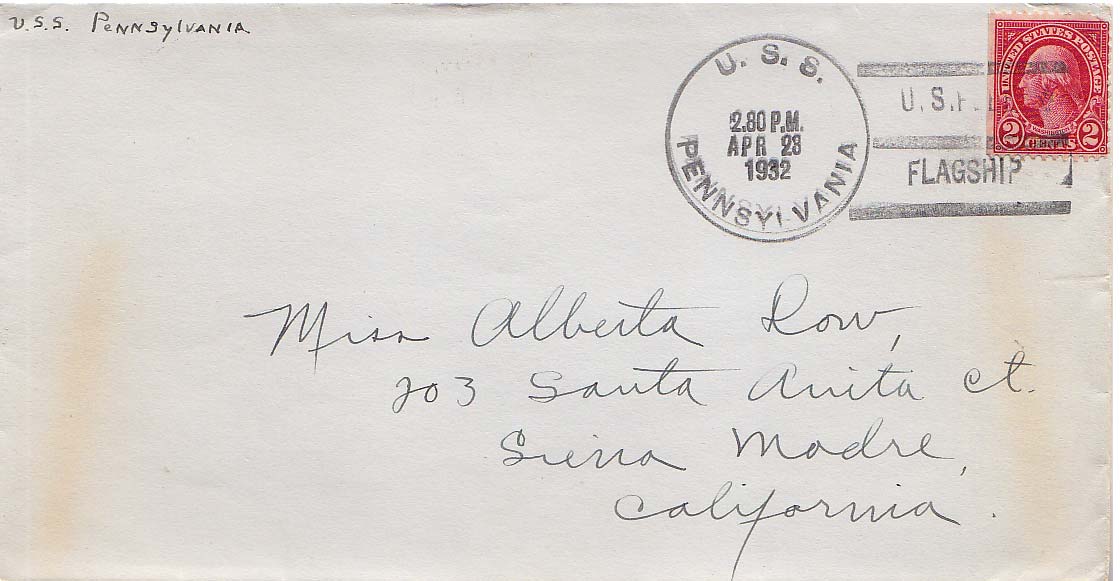 U.S.S. Pennsylvania
U. S. S.
2.30 P.M.
APR 23
1932
PENNSYLVANIA
FLAGSHIP
UNITED STATES POSTAGE
WASHINGTON
2 CENTS 2
Miss Alberta Row,
203 Santa Anita Ct.
Sierra Madre,
California.